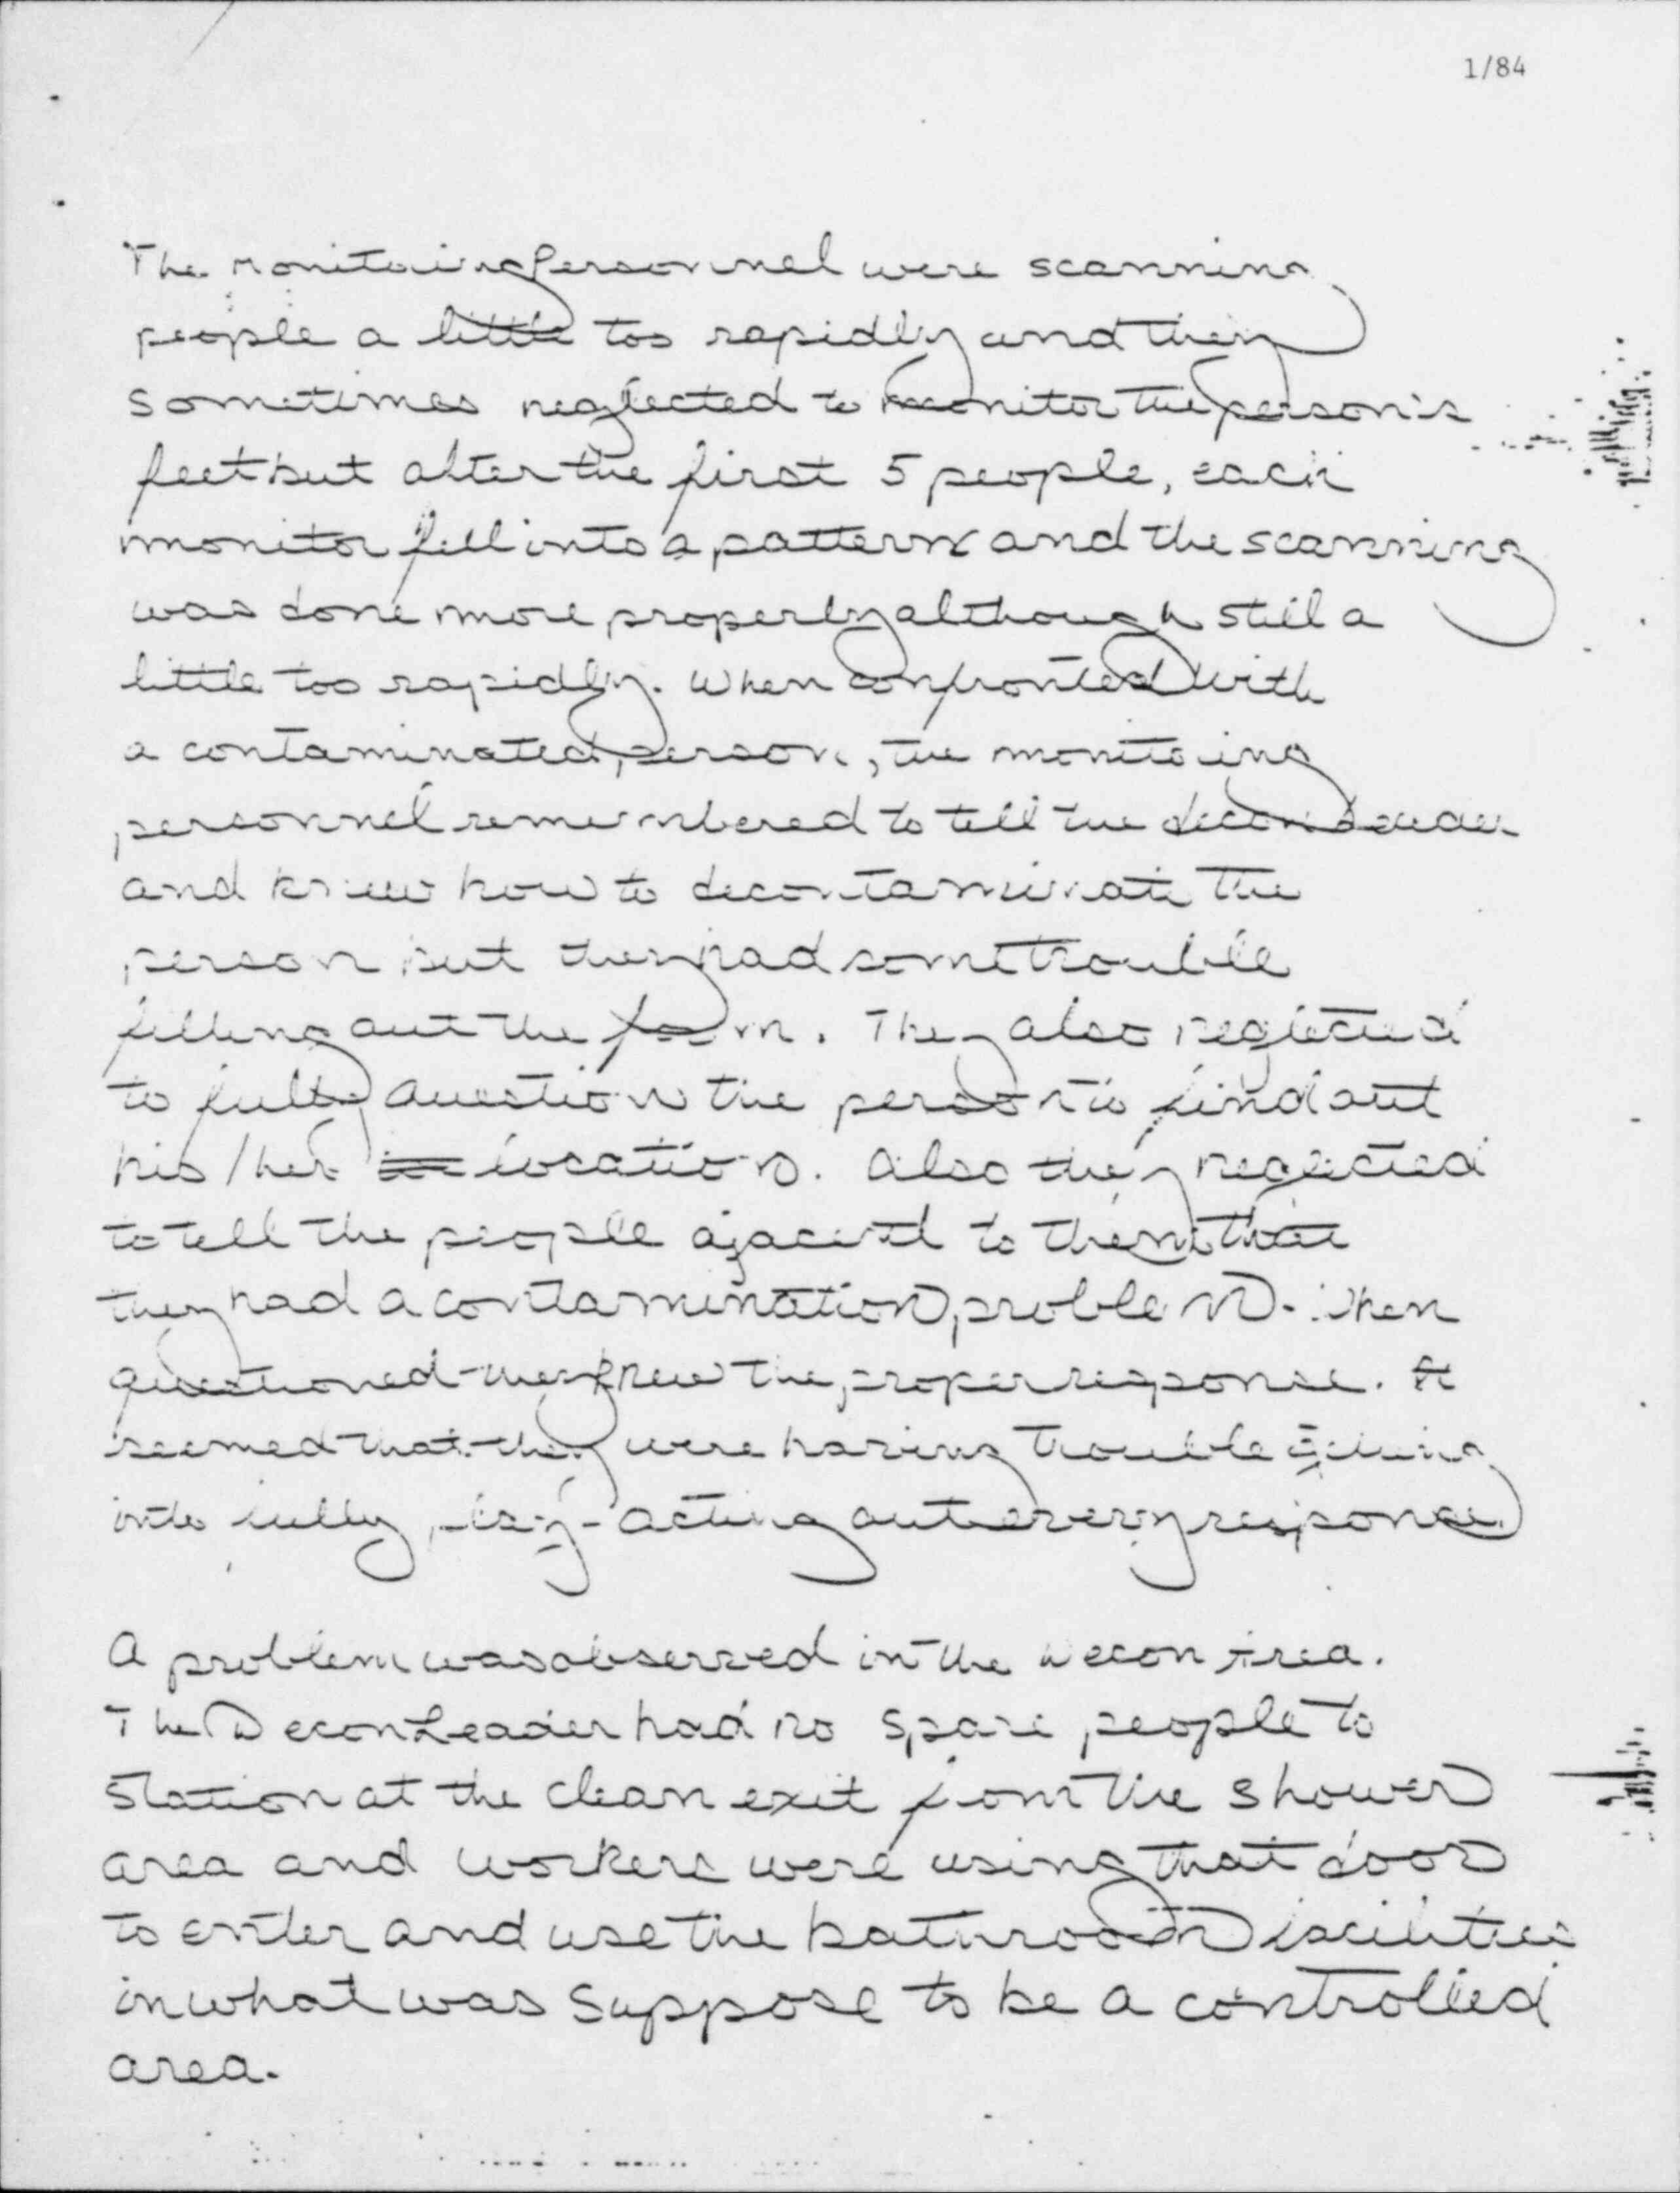 1/84
The Monitoring Personnel were scanning
people a little too rapidly and they
sometimes neglected to monitor the person's
feet but after the first 5 people, each
monitor fell into a pattern and the scanning
was done more properly although still a
little too rapidly. When confronted with
a contaminated person, the monitoing
personnel remembered to tell the decon leader
and knew how to decontaminate the
person but they had some trouble
filling out the form. They also neglected
to fully question the person to find out
his/her location. Also they neglected
to tell the people ajacent to them that
they had a contamination problem. When
questioned they knew the proper response. It
seemed that they were having trouble getting
into fully play-acting out every response.
A problem was observed in the Decon Area.
The Decon Leader had no spare people to
station at the clean exit from the shower
area and workers were using that door
to enter and use the bathroom facilities
in what was suppose to be a controlled
area.